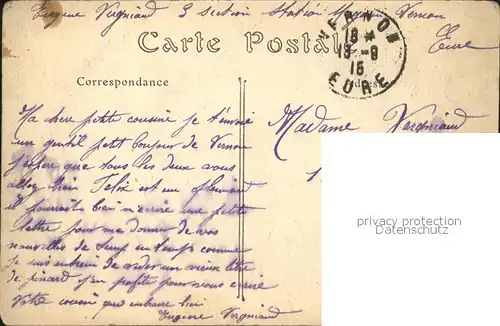 Eugene Vergniaud 3 section Station Vernon
Eure
Carte Postale
VERNON
18
13-9
15
EURE
Correspondance
Madame Vergniaud
Ma chere petite cousine je t'envoie
un gentil petit bonjour de Vernon
j'espere que tous les deux vous
allez bien Felix est un
il pourrait bien m'ecrire une petite
lettre pour me donner de vos
nouvelles de temp en temps comme
je suis entrain de vider un vieux litre
de pinard j'en profite pour vous ecrire
Votre cousin que embrasse bien
Eugene Vergniaud
privacy protection
Datenschutz